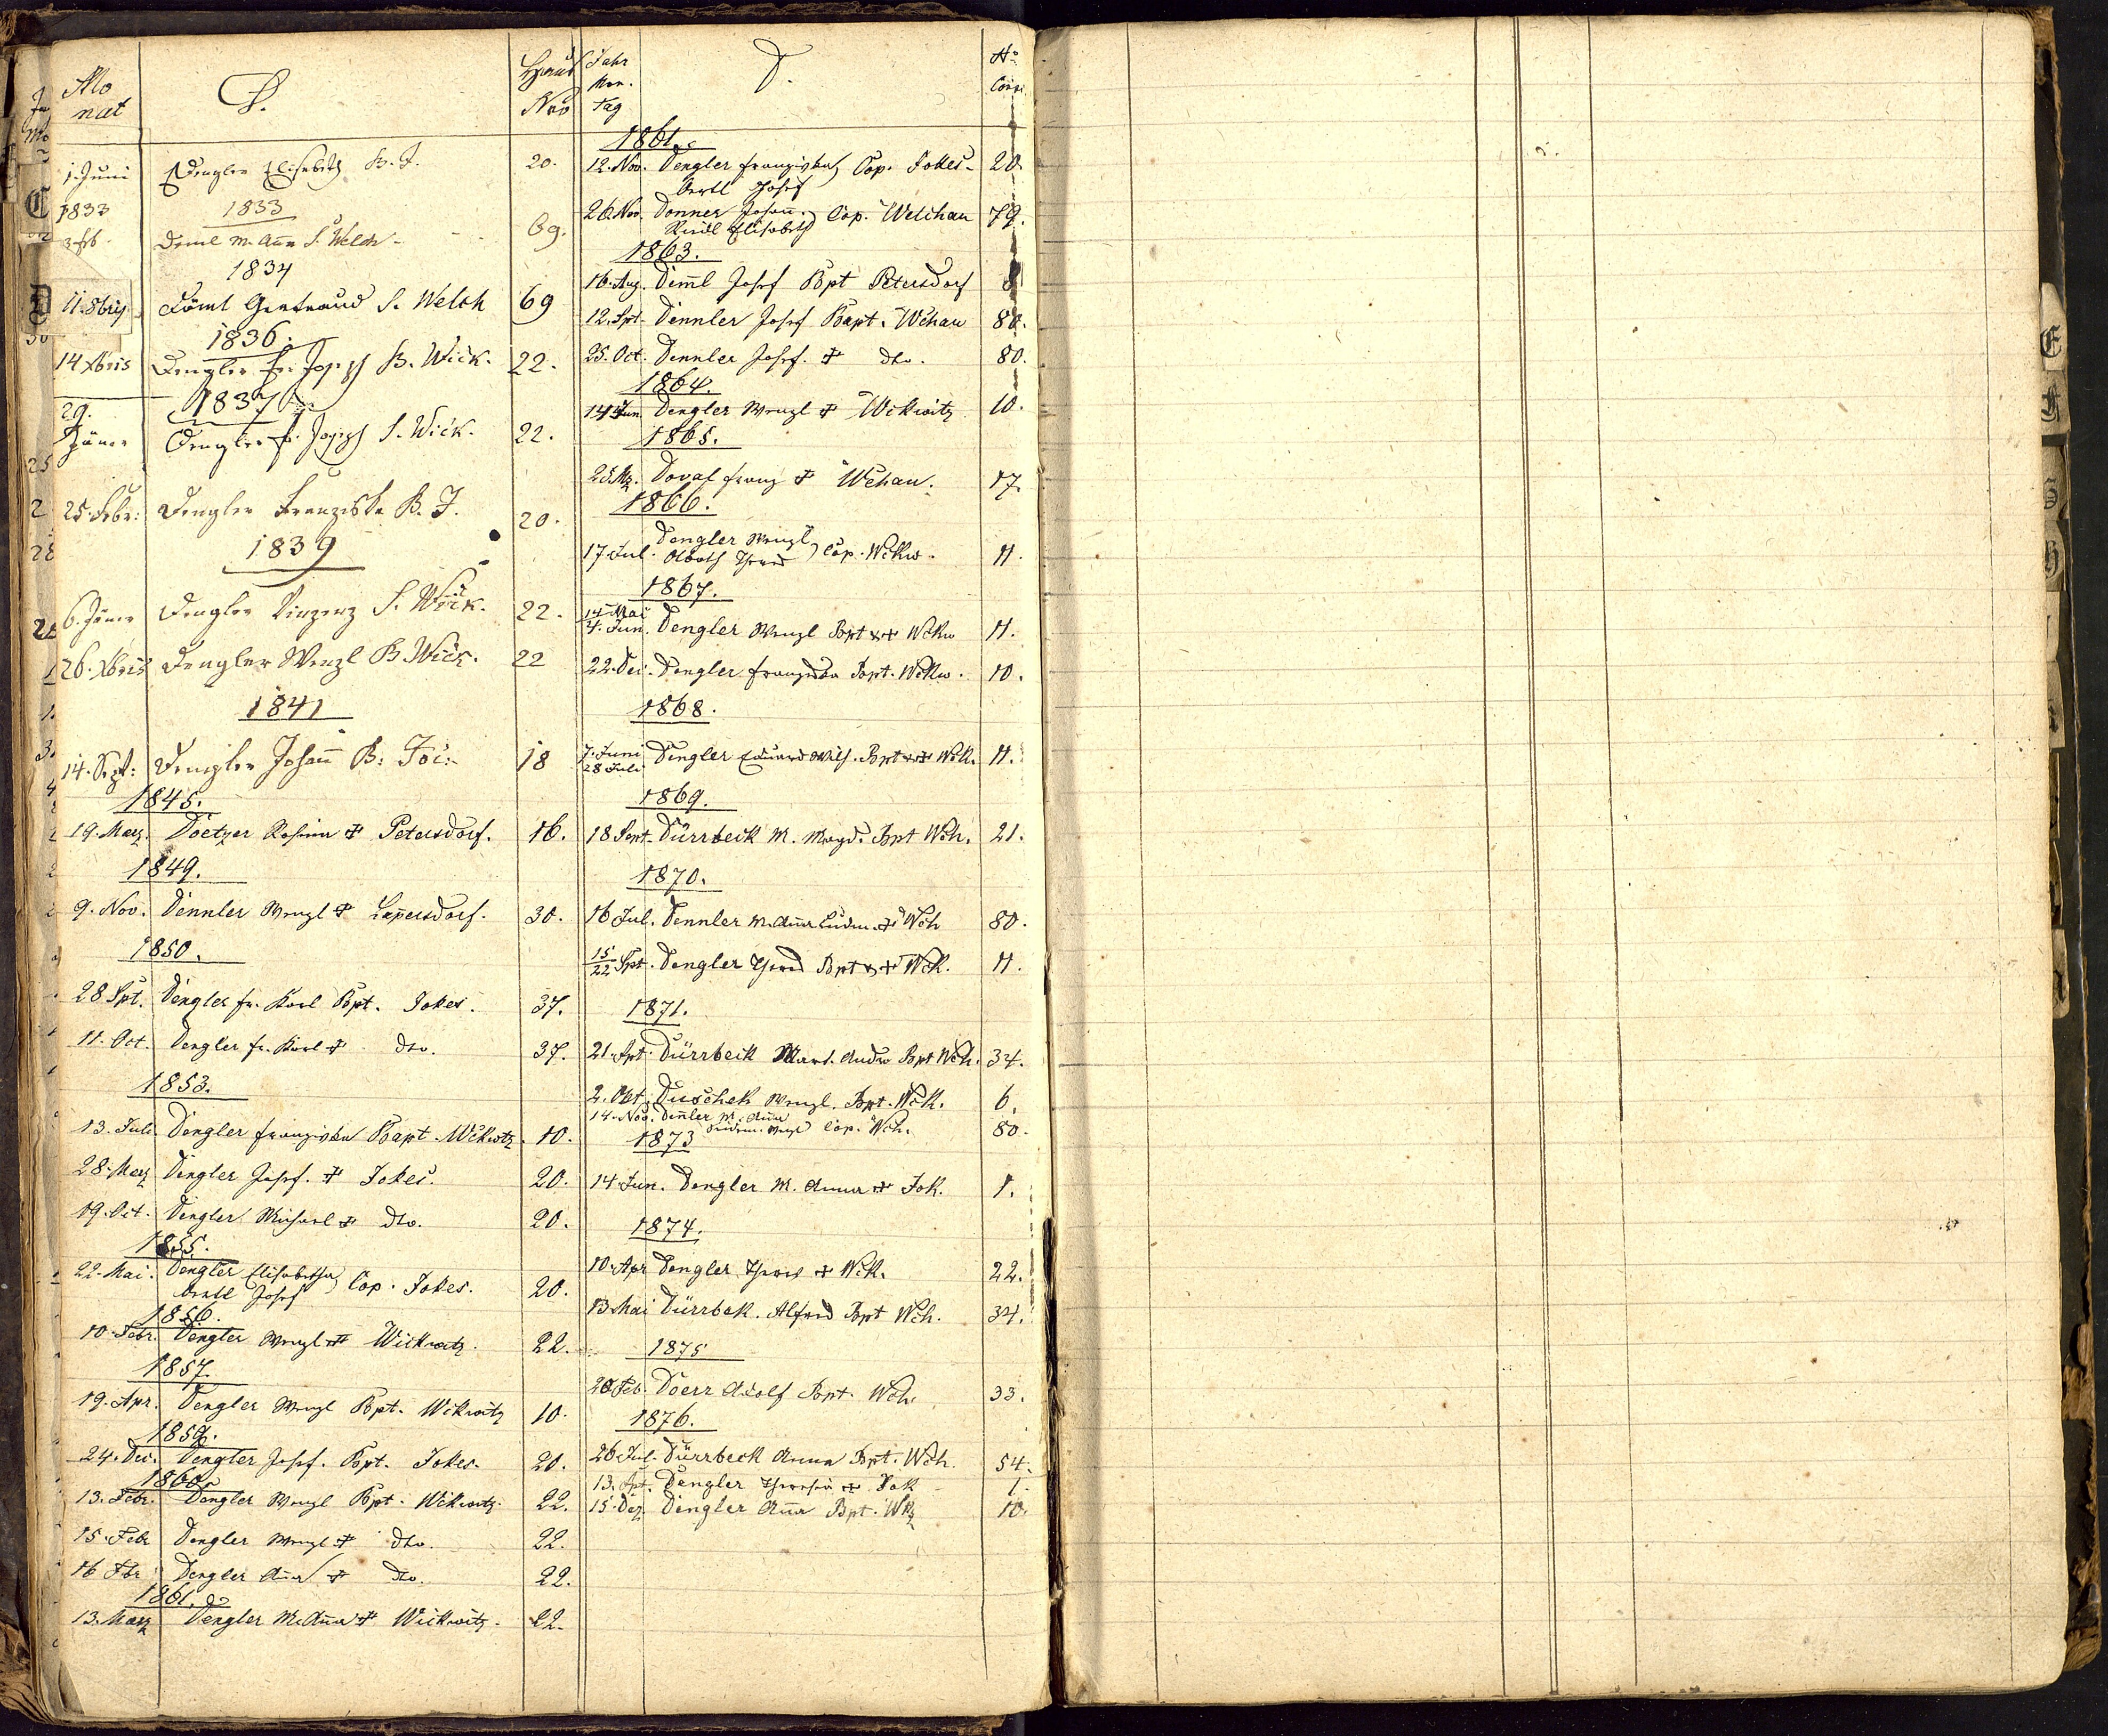 Monat D. Haus Nro
1. Juni Dengler Elisabeth B. J. 20.
1833 1833
3. Feb. Deml M. Aña S. Welch 69.
1834
11. 8bris Döml Gertraud S. Welch 69
1836.
14 Xbris Dengler Fr. Joseph B. Wick. 22.
1837
29. Jäner Dengler Fr. Joseph S. Wick. 22.
25. Febr: Dengler Franziska B. J. 20.
1839
6. Jäner Dengler Vinzenz S. Wick. 22.
26. Xbris Dengler Wenzl B Wick. 22
1841
14. Sept: Dengler Johañ B: Joc: 18
1845.
19. Marz. Doetzer Rosina ✝ Petersdorf. 16.
1849.
9. Nov. Dennler Wenzl ✝ Lappersdorf. 30.
1850.
28 Spt. Dengler fr. Karl Bpt. Jokes. 37.
11. Oct. Dengler fr. Karl ✝ dto. 37.
1853.
13. Juli Dengler Franziska Bapt. Wikwitz. 10.
28. Marz Dengler Josef. ✝ Jokes. 20.
19. Oct. Dengler Michael ✝ dto. 20.
1855.
22. Mai. Dengler Elisabetha
Josef Cop. Jokes. 20.
1856.
10. Febr. Dengler Wenzl ✝ Wickwitz. 22.
1857.
19. Apr. Dengler Wenzl Bpt. Wikwitz 10.
1859.
24. Dec. Dengler Josef. Bpt. Jokes. 20.
1860.
13. Febr. Dengler Wenzl Bpt. Wikwitz. 22.
15. Febr Dengler Wenzl ✝ dto. 22.
16 Fbr Dengler Aña ✝ dto. 22.
1861.
13. Marz Dengler M. Aña ✝ Wickwitz. 22.
Jahr Mon. Tag D. No Cons
1861.
12. Nov. Dengler Franziska Cop. Jokes. 20.
Josef
26. Nov. Donner Johañ. Cop. Welchau 79.
Riedl Elisabeth
1863.
16. Aug. Diml Josef Bpt Petersdorf 8
12. Spt. Dennler Josef Bapt. Wchau 80.
25. Oct. Dennler Josef. ✝ dto. 80.
1864.
14 Jun. Dengler Wenzl ✝ Wikwitz 10.
1865.
25. Mz. Franz ✝ Wchau. 17.
1866.
Dengler Wenzl
17 Jul. Theres Cop. Wikw. 11.
1867.
14 Mai
4. Jun. Dengler Wenzl Bpt ✝✝ Wikw 11.
22. Dec. Dengler Franziska Bpt. Wikw. 10.
1868.
7. Juni
28 Juli Dengler Eduard Wilh. Bpt ✝✝ Wik. 11.
1869.
18 Sept. Dürrbeck M. Magd. Bpt Wch. 21.
1870.
16 Jul. Dennler M. Aña Ludm. ✝ Wch 80.
15
22 Spt. Dengler Theres Bpt ✝✝ Wik. 11.
1871.
21. Spt. Dürrbeck Mart. Bpt Wch. 34.
2. Okt. Duschek Wenzl. Bpt. Wik. 6.
14. Nov. Deñler M. Aña
Cop. Wch. 80.
1873
14 Jun. Dengler M. Anna ✝ Jok. 1.
1874.
10 Apr Dengler Theres ✝ Wik. 22.
13 Mai Dürrbek. Alfred Bpt Wch. 34.
1875
20 Feb. Doerr Adolf Bpt. Wch. 33.
1876.
26 Jul. Dürrbeck Anna Bpt. Wch. 54.
13. Spt. Dengler Theresia ✝ Jok 1.
15 Dez Dengler Aña Bpt. Wkz 10.
C
D
E
F
G
H